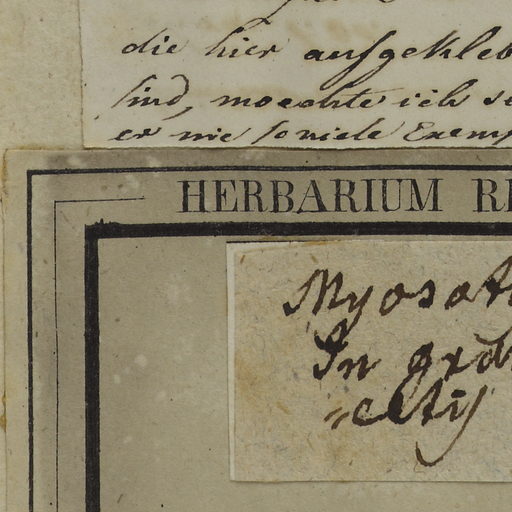 die hier aufgekleb
sind, moechte ich se
er nie so viele Exemp
HERBARIUM RE
Myosot
In gra